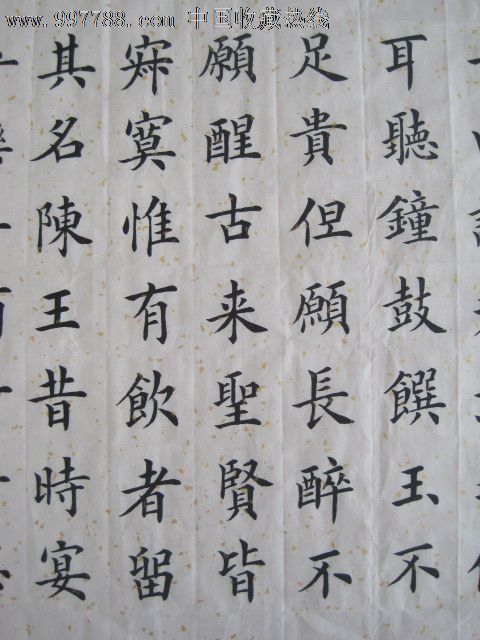 www.997788.com 中国收藏热线
耳聽鐘鼓饌玉不
足貴但願長醉不
願醒古来聖賢皆
寂寞惟有飲者留
其名陳王昔時宴